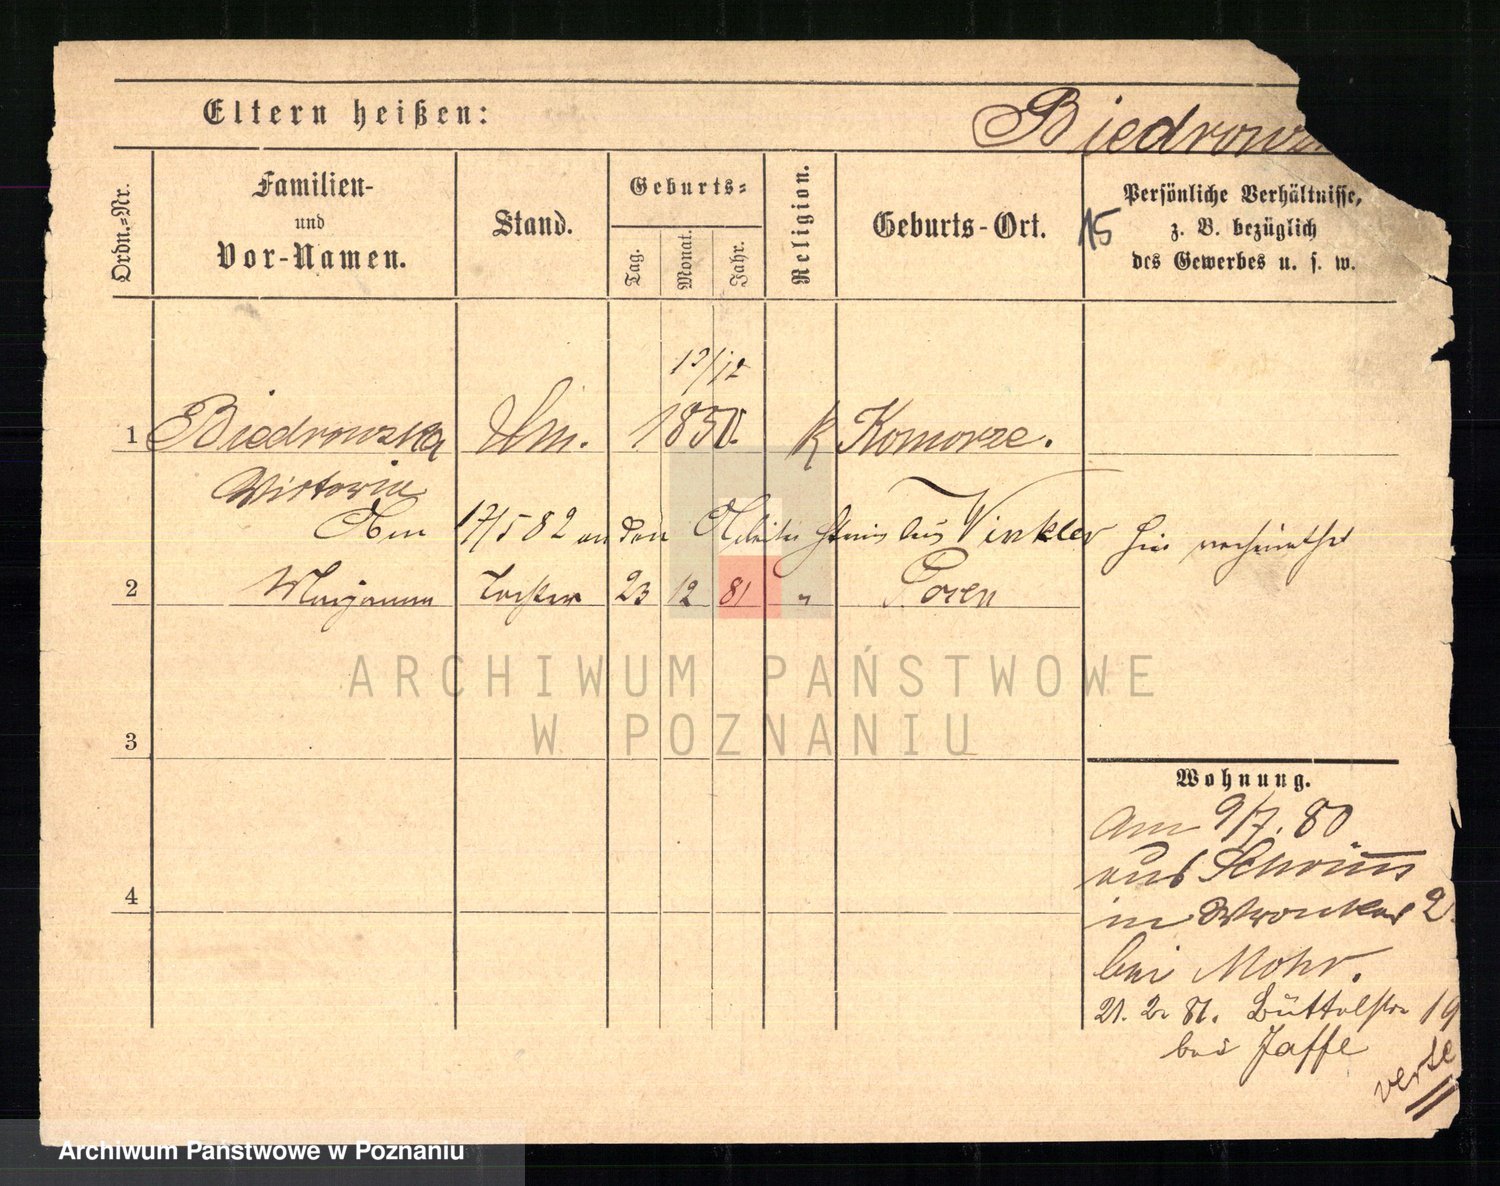 Eltern heißen:
Biedrows
Ordn.-Nr.
Familien-
und
Vor-Namen.
Stand.
Geburts-
Tag.
Monat.
Jahr.
Religion.
Geburts-Ort.
15
Persönliche Verhältnisse,
z. B. bezüglich
des Gewerbes u. s. w.
12/12
1 Biedrowska Um. 1850. k Komorze.
Wictoria
Am 17/5 82 an den Winkler hier verheirathet
2 Marjanna Tochter 23 12 81 " Posen
ARCHIWUM PAŃSTWOWE
W POZNANIU
3
4
Wohnung.
Am 9/7. 80
aus Schrimm
in Wronker 2.
bei Mohr.
21. 2. 81. Büttelstr 19
bei Jaffe
verte
Archiwum Państwowe w Poznaniu